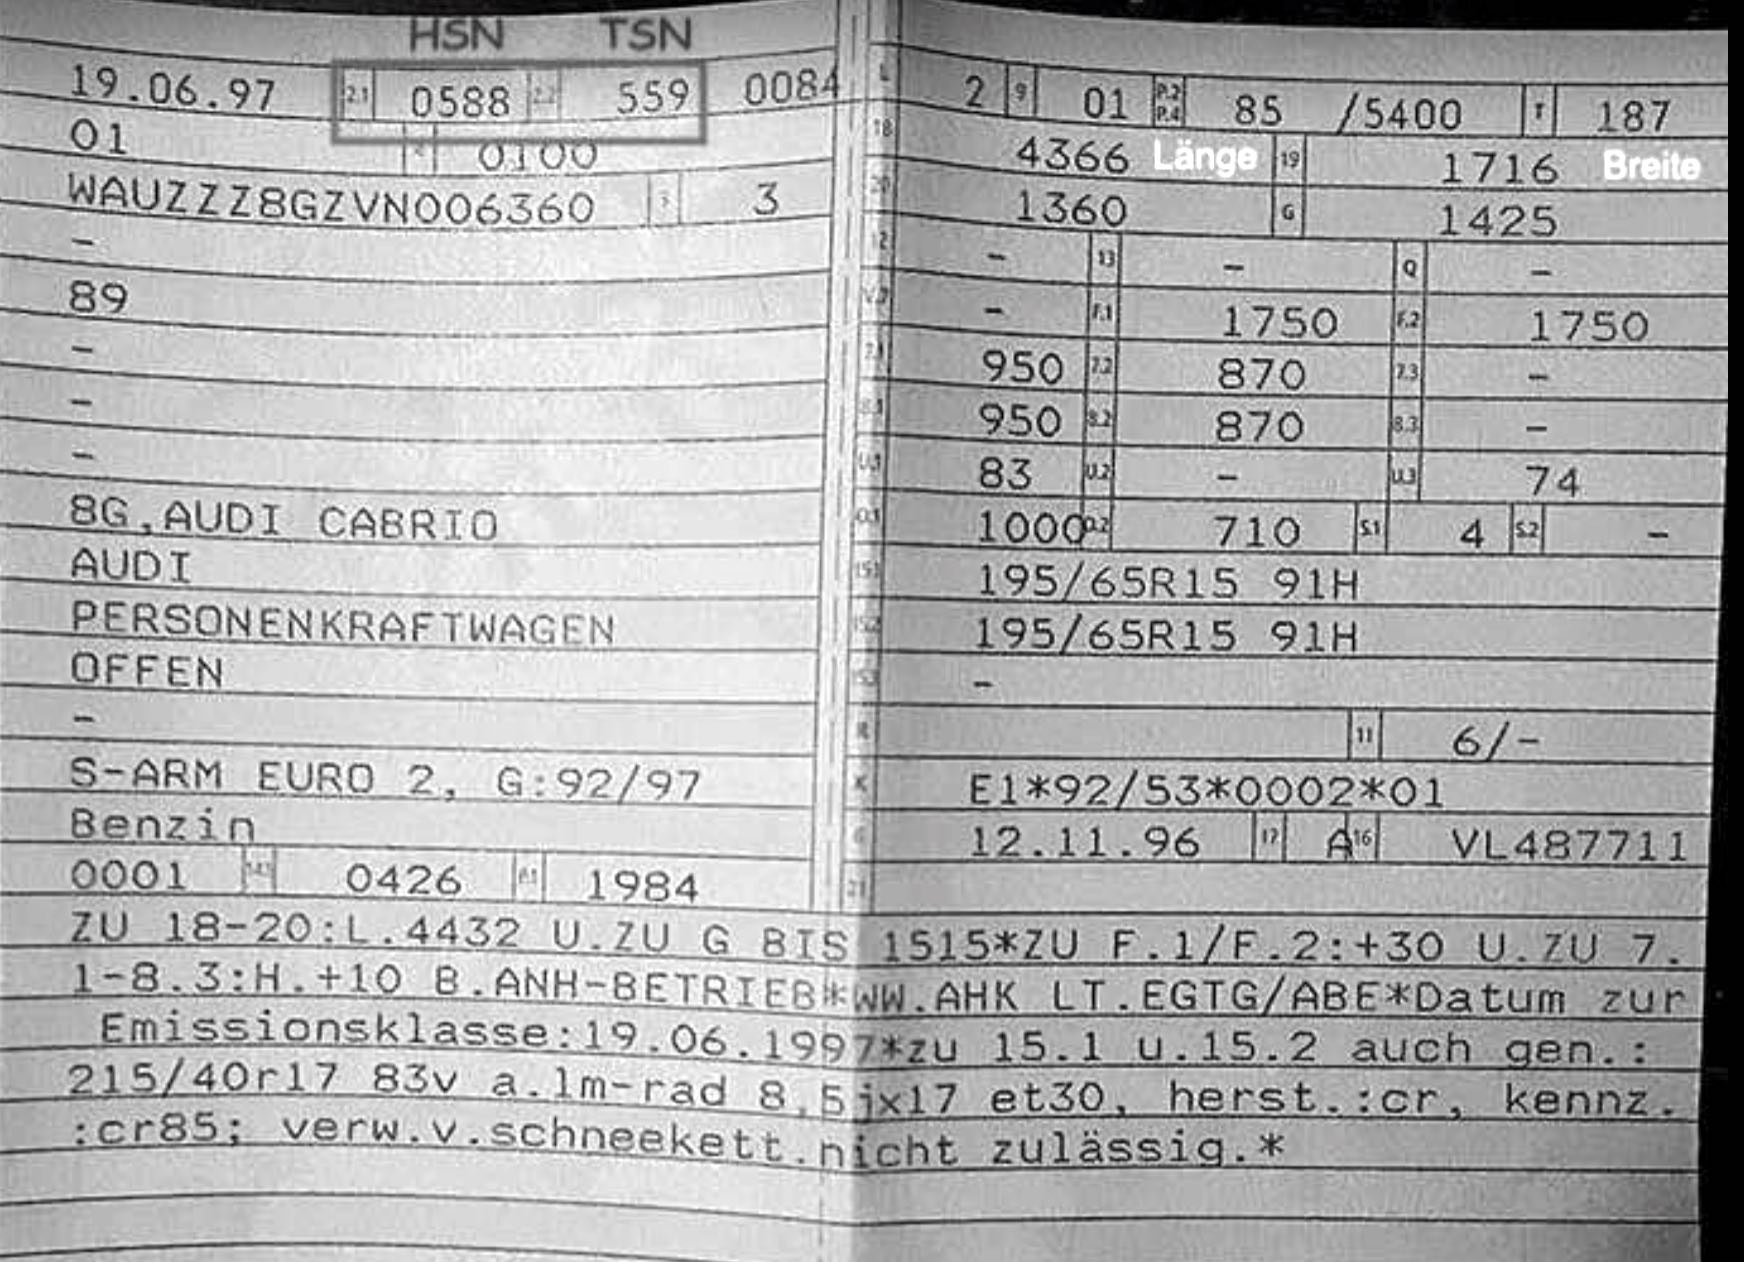 HSN TSN
19.06.97 2.1 0588 2.2 559 0084
01 0100
WAUZZZ8GZVN006360 3 3
-
89
-
-
-
8G,AUDI CABRIO
AUDI
PERSONENKRAFTWAGEN
OFFEN
-
S-ARM EURO 2, G:92/97
Benzin
0001 0426 P.1 1984
L 2 9 01 P.2 P.4 85 /5400 T 187
18 4366 Länge 19 1716 Breite
20 1360 G 1425
12 - 13 - Q -
V.7 - F.1 1750 F.2 1750
7.1 950 7.2 870 7.3 -
8.1 950 8.2 870 8.3 -
U.1 83 U.2 - U.3 74
O.1 1000 O.2 710 S.1 4 S.2 -
15.1 195/65R15 91H
15.2 195/65R15 91H
15.3 -
R 11 6/-
K E1*92/53*0002*01
6 12.11.96 17 A 16 VL487711
21
ZU 18-20:L.4432 U.ZU G BIS 1515*ZU F.1/F.2:+30 U.ZU 7.
1-8.3:H.+10 B.ANH-BETRIEB*WW.AHK LT.EGTG/ABE*Datum zur
Emissionsklasse:19.06.1997*zu 15.1 u.15.2 auch gen.:
215/40r17 83v a.lm-rad 8,5jx17 et30, herst.:cr, kennz.
:cr85; verw.v.schneekett.nicht zulässig.*